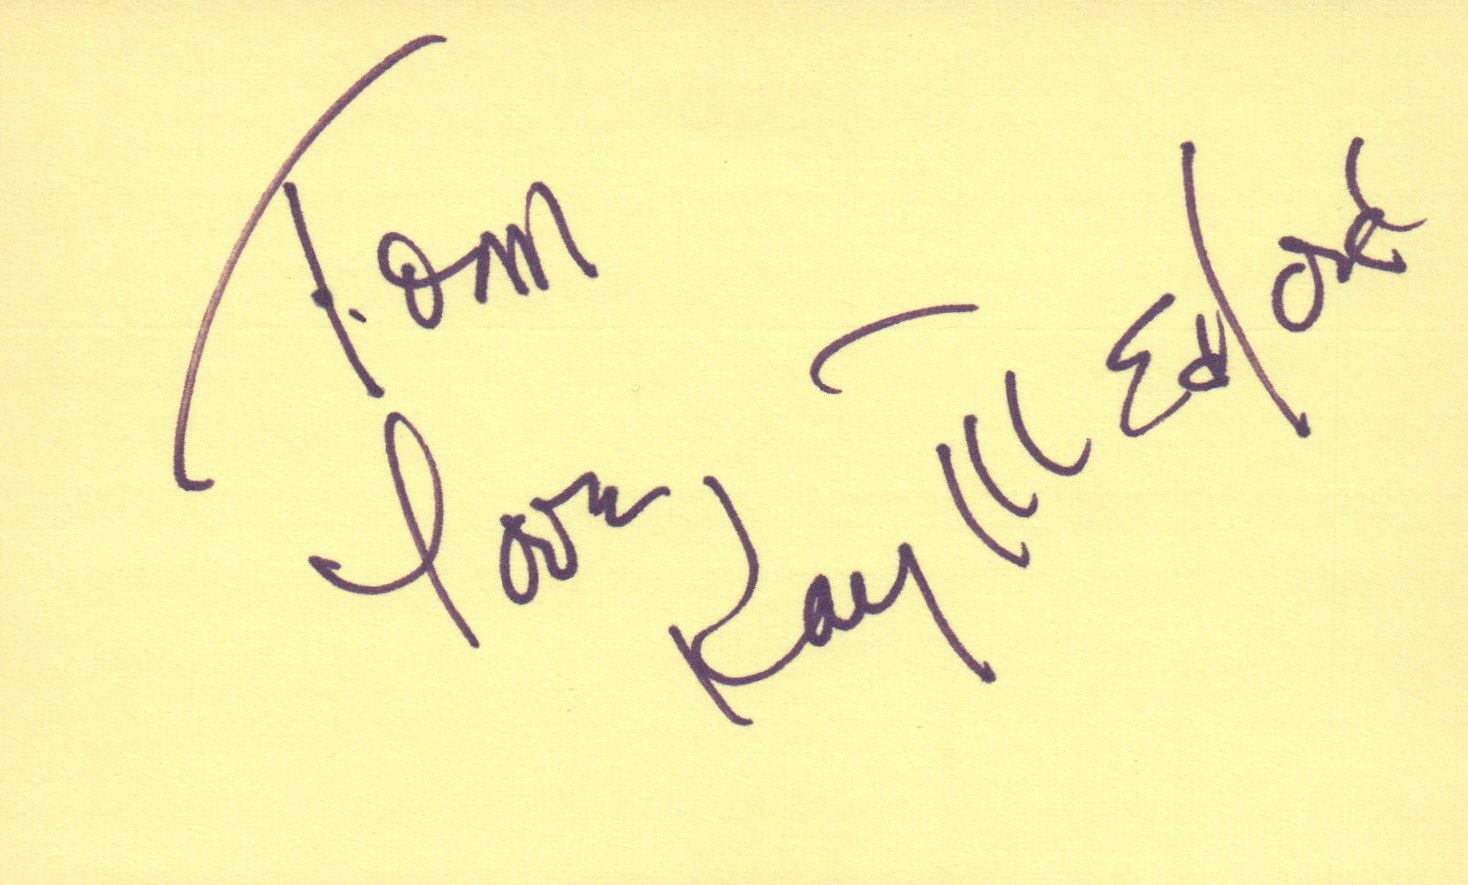 Tom
Love
Kay Medford